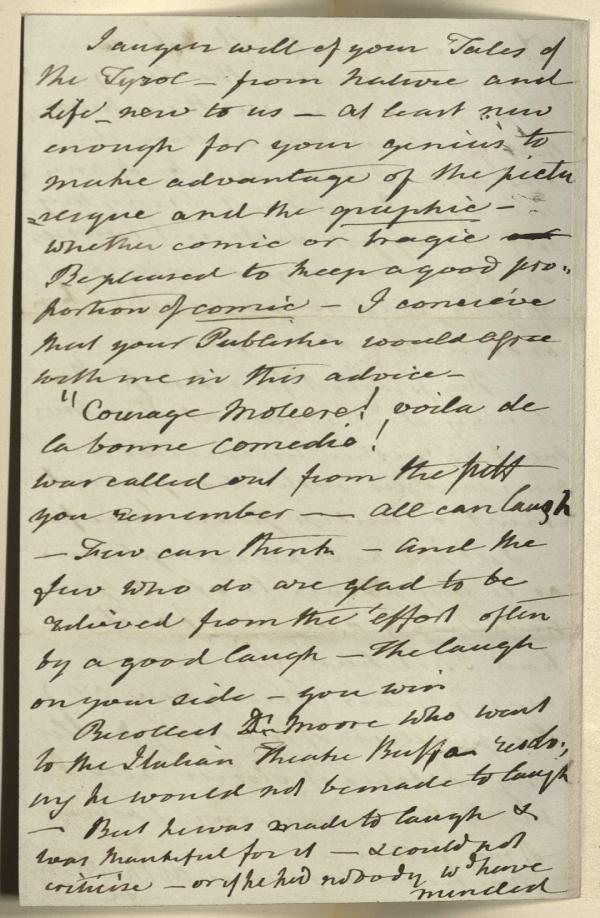 I augur well of your Tales of
the Tyrol – from Nature and
Life – new to us – at least new
enough for your genius to
make advantage of the pictu
=resque and the graphic –
whether comic or tragic
Be pleased to keep a good pro=
portion of comic – I conceive
that your Publisher would agree
with me in this advice –
"Courage Moliere! voila de
la bonne comedie!
was called out from the pitt
you remember – All can laugh
– Few can think – And the
few who do are glad to be
relieved from the effort often
by a good laugh – The laugh
on your side – you win
Recollect Dr. Moore who went
to the Italian Theatre Buffa resolv=
ing he would not be made to laugh
– But he was made to laugh &
was thankful for it – & could not
criticise – or if he had nobody wd have
minded